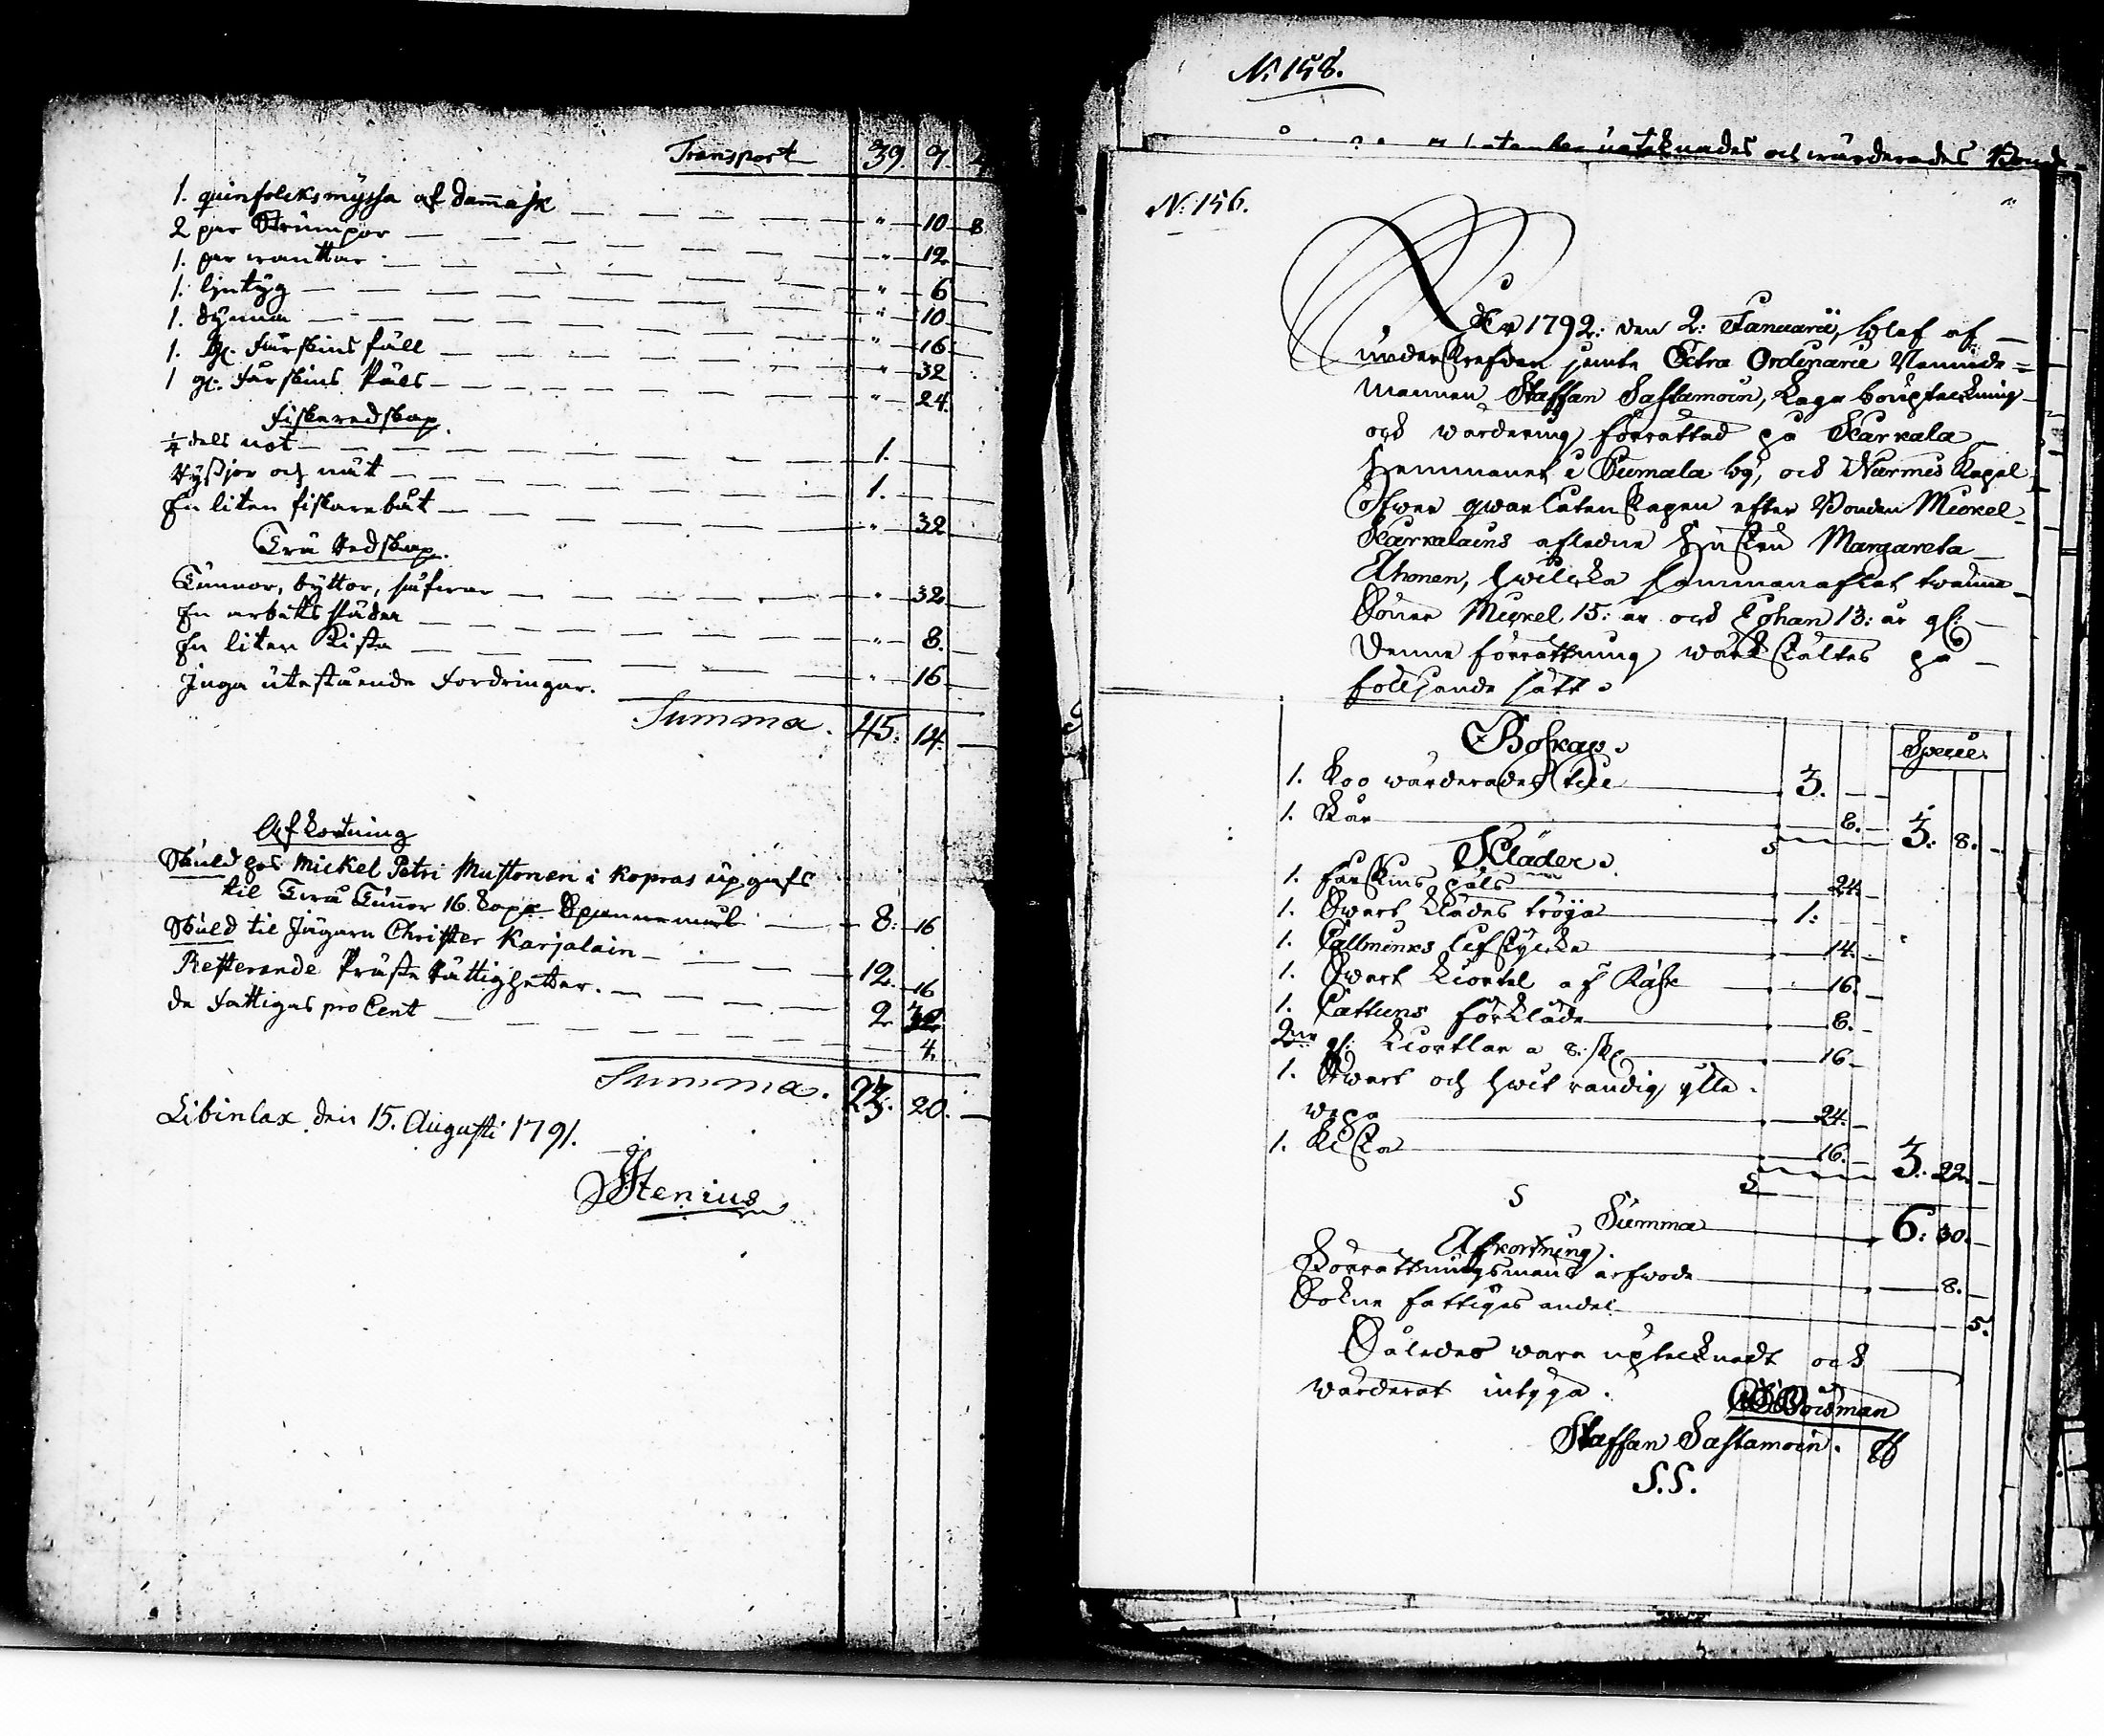 Transport 39. 7. 4
1. quinfolcksmyssa af dammask " 10 8
2 par Strumpor " 12
1. par wanttar " 6
1. lijntyg " 10
1. dynna " 16
1. gl. Fårskins fäll " 32
1 gl. Fårskins Päls " 24.
Fiskeredskap.
1/4 dels not 1.
Ryssjor och nät 1.
En liten fiskarebåt " 32
Trä Redskap.
Tunnor, byttor, såfwar " 32
En arbets släda " 8.
En liten Kista " 16
Inga utestående Fordringar.
Summa. 45: 14.
Afkortning
Skuld hos Mickel Petri Mustonen i Kopras upgafs
til Twå Tunnor 16. kappr Spannemål 8: 16
Skuld til Jägarn Christer Karjalain 12. 16
Resterande Präste Rättigheter. 2.
de Fattigas pro Cent 4.
Summa. 23. 20.
Libinlax den 15. Augusti 1791.
Stenius
No 158.
upteknades och wärderades Bonde
No 156.
År 1792: den 2: Januarii, blef af
underskrefven jemte Extra Ordinarie Nämnde=
Mannen Staffan Sastamoin, Laga bouptekning
och wärdering förrättad på Karkala
Hemmanet i Sumala by, och Narmis Kapel
öfwer qwarlåtenskapen efter Bonden Mickel
Karkalains aflidne Hustru Margareta
Ahonen, hwilcka sammanaflat twänne
Söner Mickel 15: år och Johan 13: år gl:
Denna förrättning wärkstältes på
följande sätt.
Boskap. Specie.
1. Koo wärderades till 3.
1. Får 8. 3. 8.
Kläder.
1. fårskins päls 24.
1. Swart Klädes tröya 1:
1. Callminks lifstycke 14.
1. Swart kiortel af Rask 16.
1. Cattuns förkläde 8.
2ne gl: kiortlar a 8: sk 16
1. Swart och hwit randig ylle
wepa 24.
1. Kista 16. 3. 22.
Summa 6: 30.
Afkortning.
Förrättningsmans arfwode 8.
Sokne fattiges andel 5.
Således wara uptecknadt och
wärderat intyga.
Woidman
Staffan Sastamoin.
S.S.